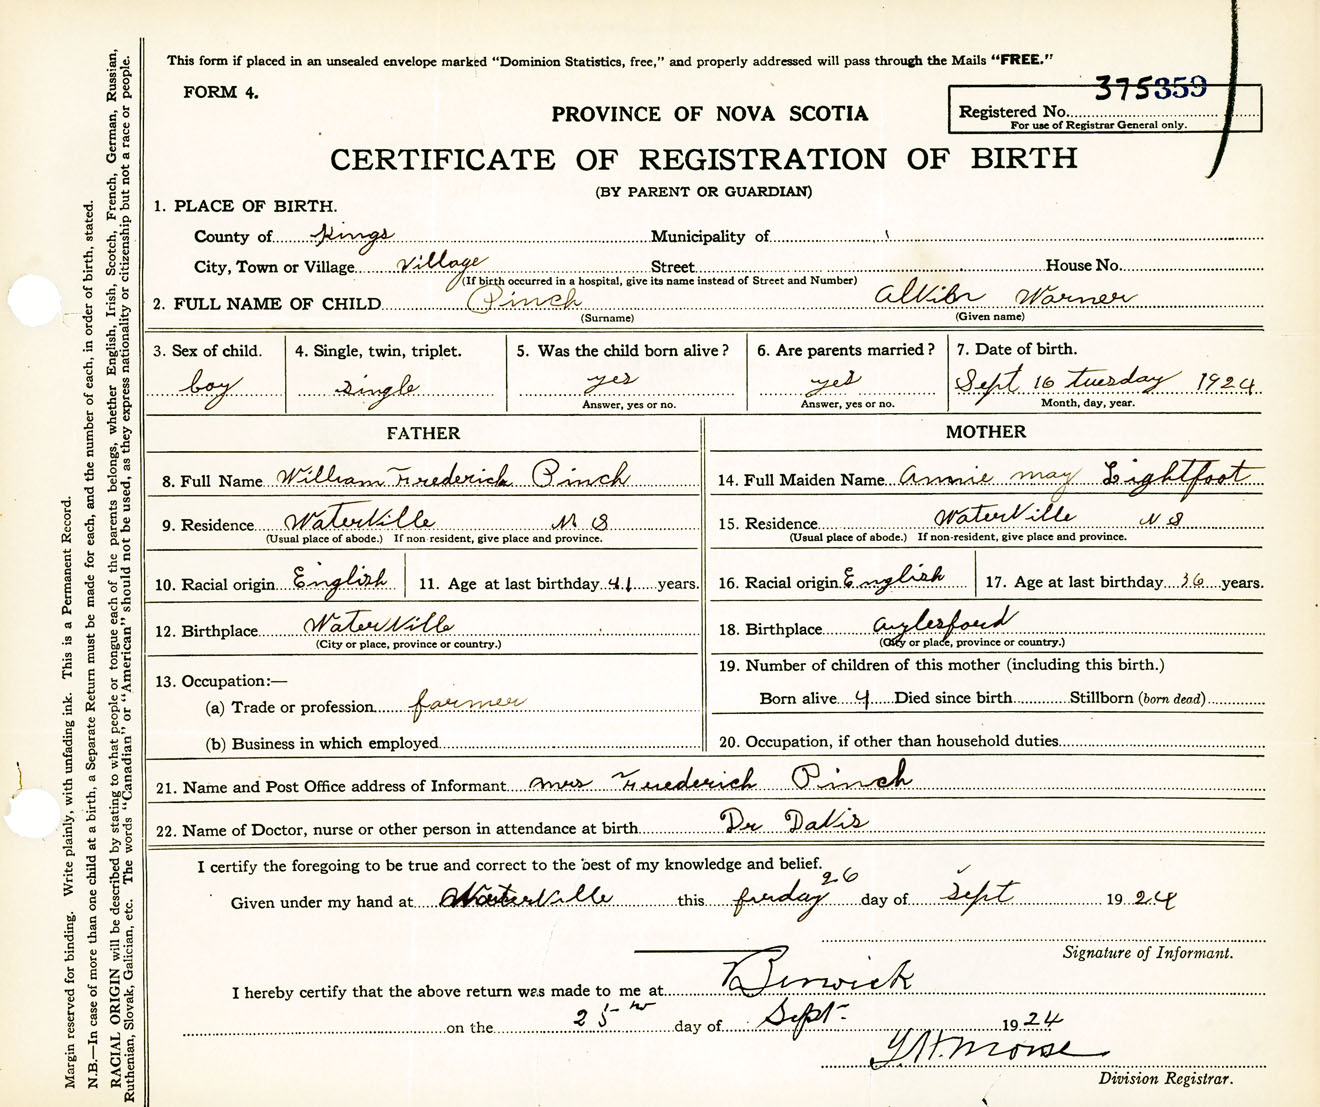 This form if placed in an unsealed envelope marked "Dominion Statistics, free," and properly addressed will pass through the Mails "FREE."
FORM 4.
375359
PROVINCE OF NOVA SCOTIA
Registered No.
For use of Registrar General only.
CERTIFICATE OF REGISTRATION OF BIRTH
(BY PARENT OR GUARDIAN)
1. PLACE OF BIRTH.
County of Kings Municipality of
City, Town or Village Village Street House No.
(If birth occurred in a hospital, give its name instead of Street and Number)
2. FULL NAME OF CHILD Pinch Warner
(Surname) (Given name)
3. Sex of child. 4. Single, twin, triplet. 5. Was the child born alive? 6. Are parents married? 7. Date of birth.
boy single yes yes Sept 16 tuesday 1924
Answer, yes or no. Answer, yes or no. Month, day, year.
FATHER MOTHER
8. Full Name William Frederick Pinch 14. Full Maiden Name annie may Lightfoot
9. Residence WaterVille N S 15. Residence WaterVille N S
(Usual place of abode.) If non-resident, give place and province. (Usual place of abode.) If non-resident, give place and province.
10. Racial origin English 11. Age at last birthday 41 years. 16. Racial origin English 17. Age at last birthday 36 years.
12. Birthplace WaterVille 18. Birthplace aylesford
(City or place, province or country.) (City or place, province or country.)
19. Number of children of this mother (including this birth.)
13. Occupation:—
Born alive 4 Died since birth Stillborn (born dead)
(a) Trade or profession farmer
(b) Business in which employed 20. Occupation, if other than household duties
21. Name and Post Office address of Informant mrs Frederich Pinch
22. Name of Doctor, nurse or other person in attendance at birth Dr DaVis
I certify the foregoing to be true and correct to the best of my knowledge and belief.
Given under my hand at WaterVille this 26 day of Sept 1924
Signature of Informant.
I hereby certify that the above return was made to me at Berwick
on the 25 day of Sept. 1924
Morse
Division Registrar.
Margin reserved for binding. Write plainly, with unfading ink. This is a Permanent Record.
N.B.—In case of more than one child at a birth, a Separate Return must be made for each, and the number of each, in order of birth, stated.
RACIAL ORIGIN will be described by stating to what people or tongue each of the parents belongs, whether English, Irish, Scotch, French, German, Russian,
Ruthenian, Slovak, Galician, etc. The words "Canadian" or "American" should not be used, as they express nationality or citizenship but not a race or people.